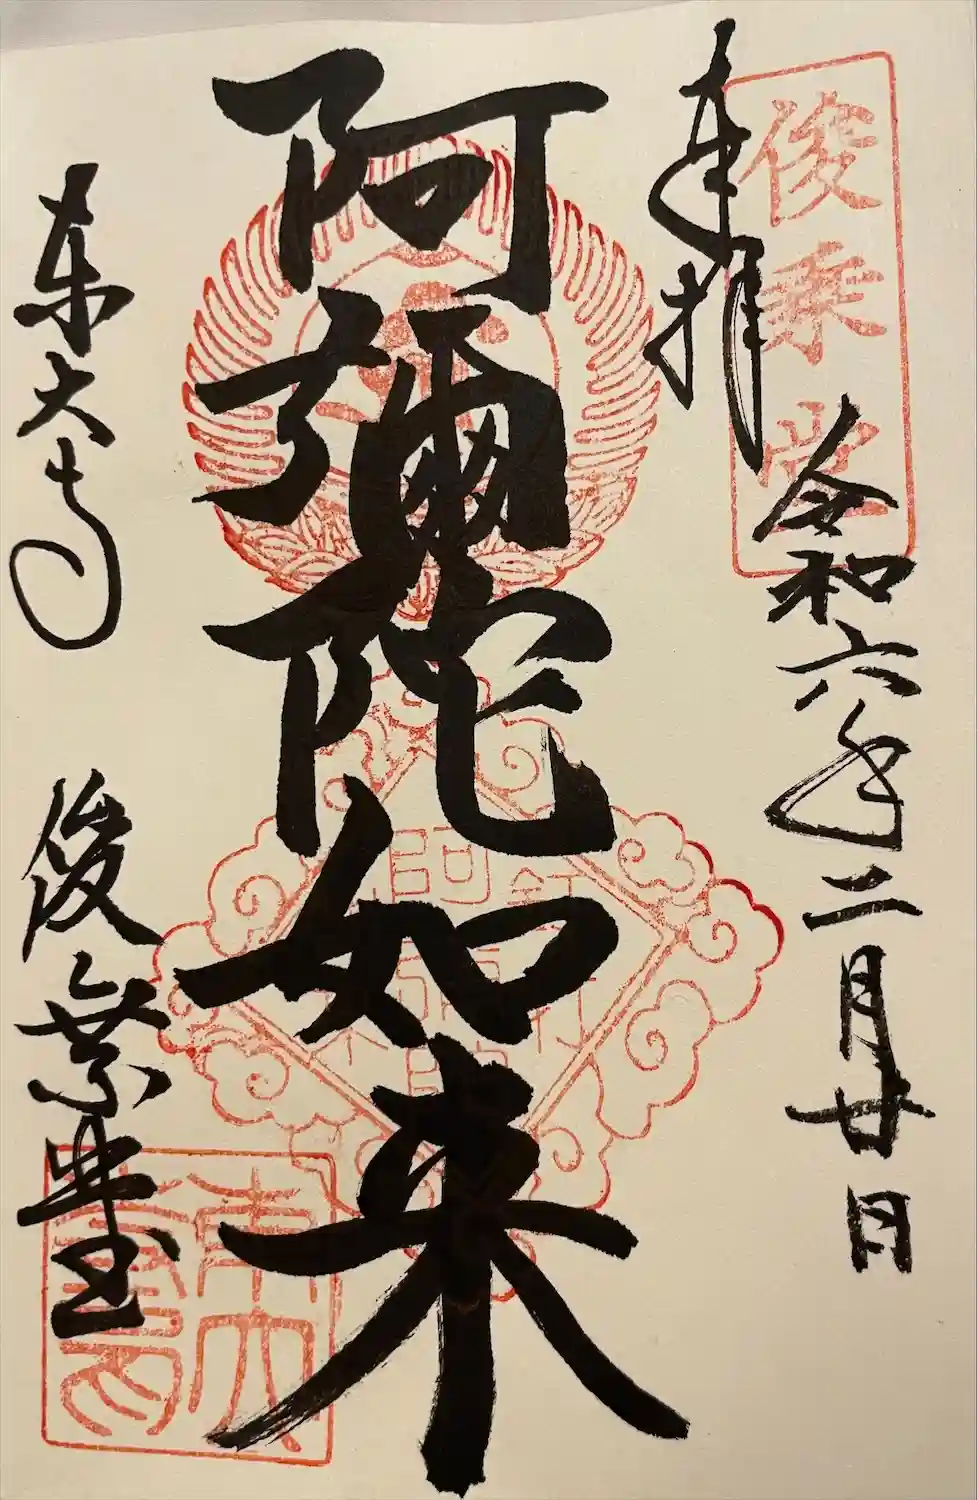 俊乗堂
奉拝
令和六年二月廿日
阿彌陀如来
東大寺
俊乗堂